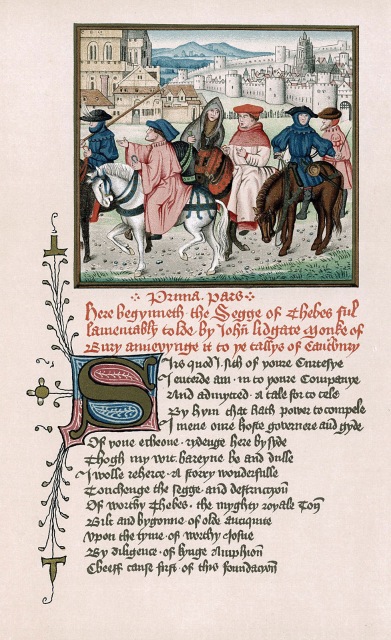 Prima. Pars
Here begynneth the Segge of Thebes ful
lamentably tolde by John lidgate monke of
Bury annexynge it to ye tallys of Canūbury
Sirs quod I sith of youre Curtesye
I entrede am in to youre Companye
And admytted a tale for to telle
By hym that hath power to compele
I mene oure hoste governere and gyde
Of yone echeone rydenge here by syde
Thogh my wit bareyne be and dulle
I wolle reherce a story wonderfulle
Touchenge the segge and destruccyon
Of worthy Thebes the myghty royale Ton
Bilt and bygonne of olde antiquite
Vpon the tyme of worthy Iosue
By diligence of kynge Amphion
Cheeff cause first of this foundacion